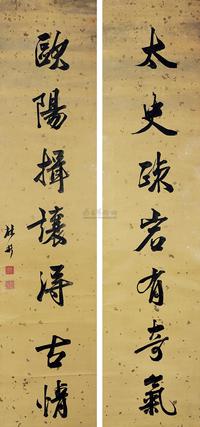 太史疎宕有奇氣
歐陽揖讓得古情